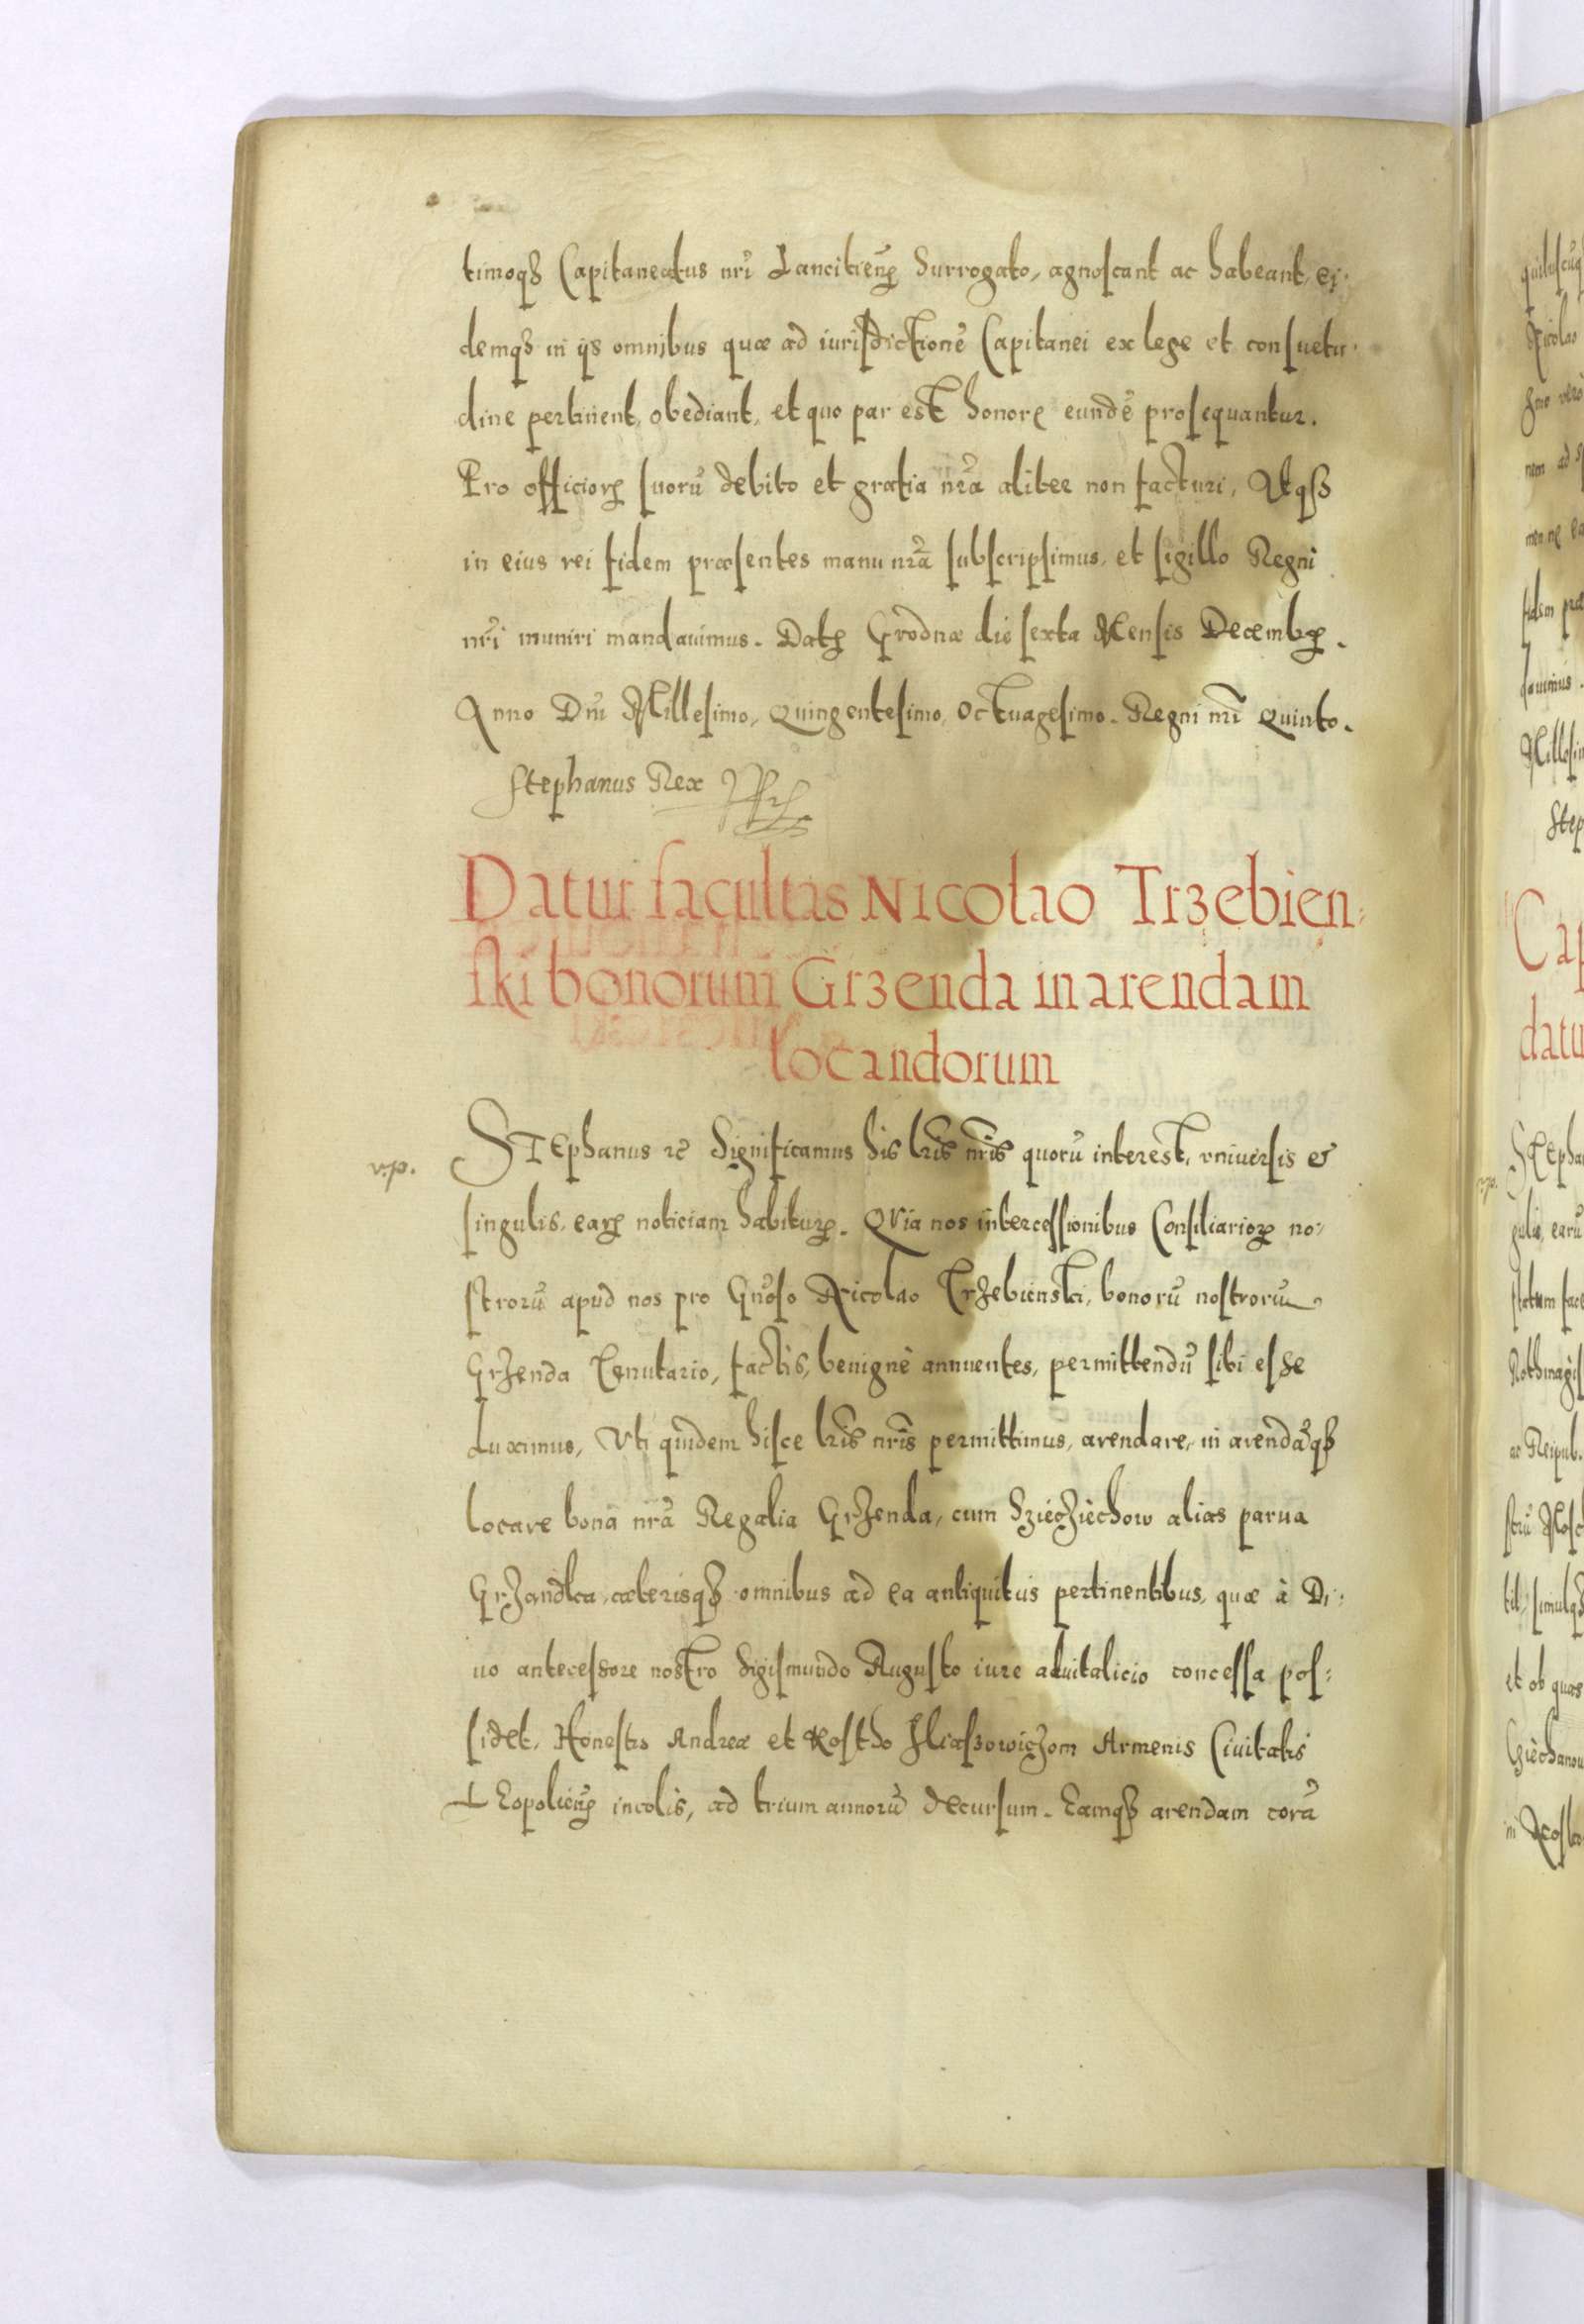 timoqȝ Capitaneatus nr̃i Lancitień Surrogato, agnoscant ac habeant, ei-
demqȝ in ijs omnibus quæ ad iurisdictionẽ Capitanei ex lege et consuetu-
dine pertinent, obediant, et quo par est honore eundẽ prosequantur.
Pro officioꝝ suorũ debito et gratia nr̃a aliter non facturi, Atqȝ
in eius rei fidem præsentes manu nr̃a subscripsimus, et sigillo Regni
nr̃i muniri mandauimus. Datꝭ Grodnæ die sexta Mensis Decembꝭ.
Anno Dni Millesimo, Quingentesimo, Octuagesimo. Regni nr̃i Quinto.
Stephanus Rex
Datur facultas Nicolao Trzebien-
ski bonorum Grzenda in arendam
locandorum
v.p.
Stephanus ꝛc̃ Significamus his lr̃is nr̃is quorũ interest, vniuersis et
singulis, eaꝝ noticiam habituꝝ. Quia nos intercessionibus Consiliarioꝝ no-
strorũ apud nos pro Gnõso Nicolao Trzebienski, bonorũ nostrorũ
Grzenda Tenutario, factis, benignè annuentes, permittendũ sibi esse
duximus, Vti quidem hisce lr̃is nr̃is permittimus, arendare, in arendãqȝ
locare bona nr̃a Regalia Grzenda, cum Sziecziechow alias parua
Grzandka, cæterisqȝ omnibus ad ea antiquitus pertinentibus, quæ à Di-
uo antecessore nostro Sigismundo Augusto iure aduitalicio concessa pos-
sidet, Honestis Andreæ et Kostho Iliaszowiczom Armenis Ciuitatis
Leopolień incolis, ad trium annorũ decursum. Eamqȝ arendam corã